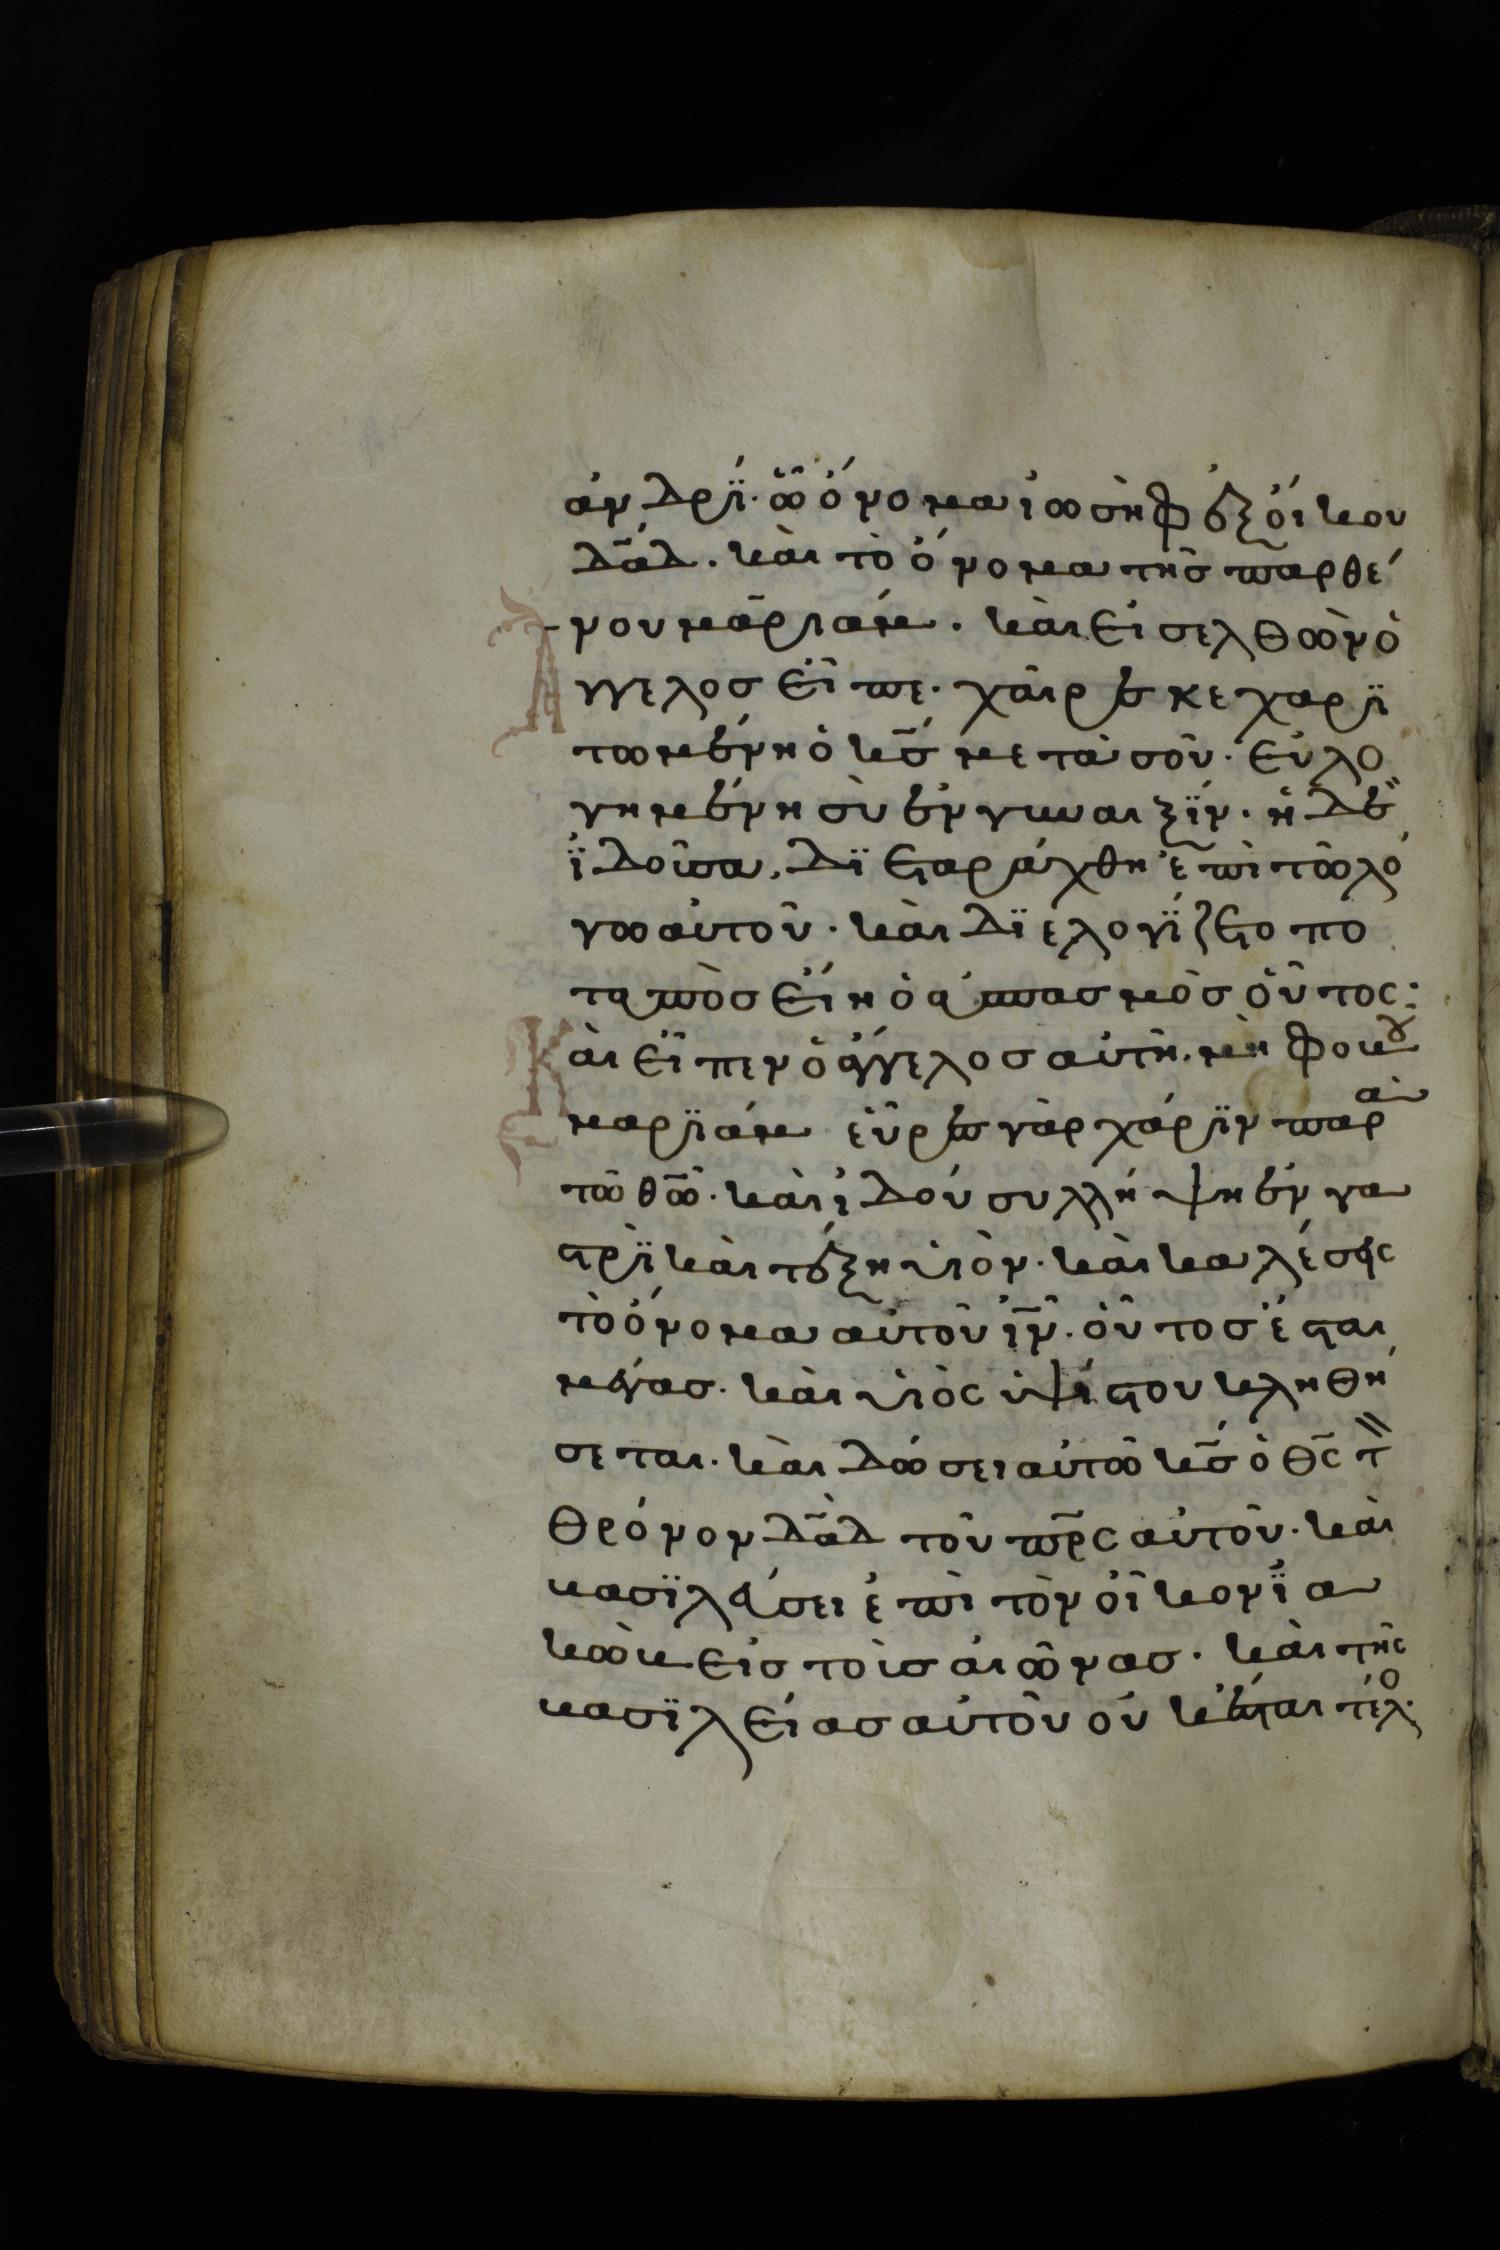 ἀνδρϊ· ὧ ὄνομα ἰωσὴφ ἐξ ὄικου
δᾱδ· καὶ τὸ ὄνομα τῆσ παρθέ
νου μαριάμ· καὶ εἰσελθὼν ὁ
ἄγγελοσ εἶπε· χαῖρε κεχαρϊ
τωμένη ὁ κ̄σ μετὰ σοῦ· εὐλο
γημένη σὺ ἐν γυναιξΐν· ἡ δὲ
ϊδοῦσα, δϊεταράχθη ἐπὶ τῶ λό
γω αὐτοῦ· καὶ δϊελογΐζετο πο
ταπὸσ εἴη ὁ ἀσπασμὸσ οὗτος:
Καὶ εἶπεν ὁ ἄγγελοσ αὐτῆ· μὴ φοβοῦ
μαρϊάμ εὗρεσ γὰρ χάρϊν παρὰ
τῶ θ̄ω· καὶ ἰδοὺ συλλήψη ἐν γα
στρϊ καὶ τέξη υἱὸν· καὶ καλέσεις
τὸ ὄνομα αὐτοῦ ῑν· οὗτοσ ἔσται
μέγασ· καὶ υἱὸς ὑψίστου κληθή
σεται· καὶ δώσει αὐτῶ κ̄σ ὁ θ̄ς τὸν
θρόνον δᾱδ τοῦ π̄ρς αὐτοῦ· καὶ
βασϊλεύσει ἐπὶ τὸν οἶκον ϊα
κὼβ εἰσ τοὺσ αἰῶνασ· καὶ τῆς
βασϊλείασ αὐτοῦ οὐκ ἔσται τέλο·